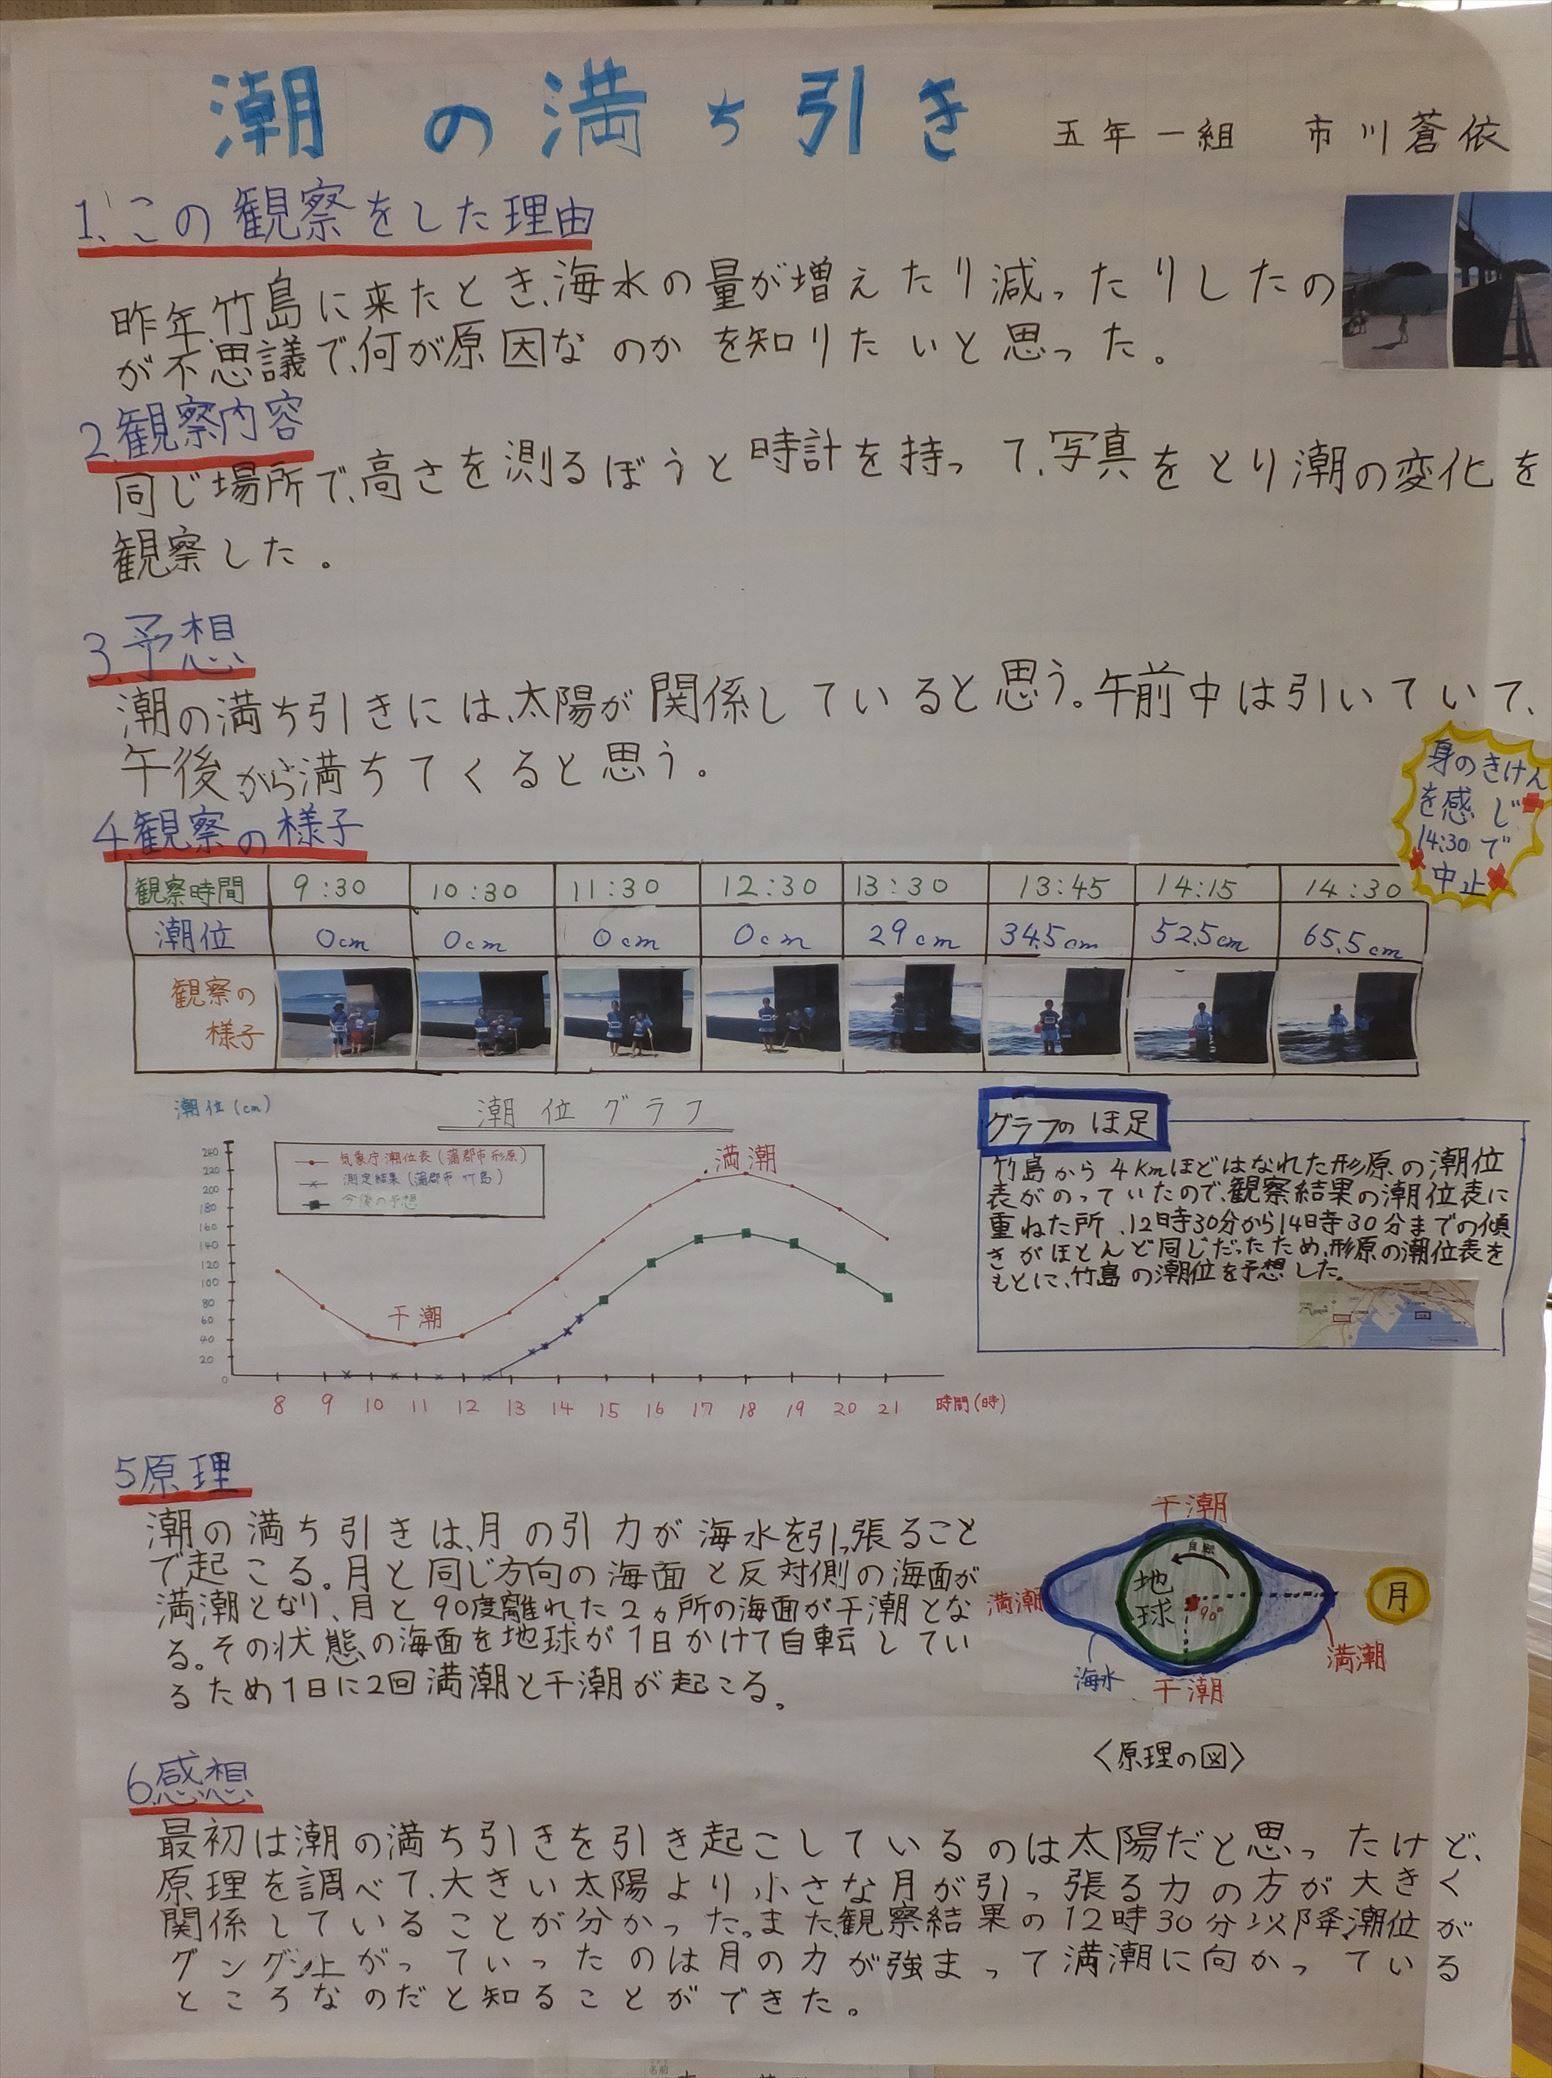 潮の満ち引き 五年一組 市川蒼依
1.この観察をした理由
昨年、竹島に来たとき、海水の量が増えたり減ったりしたの
が不思議で、何が原因なのかを知りたいと思った。
2.観察内容
同じ場所で、高さを測るぼうと時計を持って、写真をとり潮の変化を
観察した。
3.予想
潮の満ち引きには、太陽が関係していると思う。午前中は引いていて、
午後から満ちてくると思う。
身のきけん
を感じ
14:30で
中止
4.観察の様子
観察時間 9:30 10:30 11:30 12:30 13:30 13:45 14:15 14:30
潮位 0cm 0cm 0cm 0cm 29cm 34.5cm 52.5cm 65.5cm
観察の
様子
潮位(cm) 潮位グラフ
気象庁潮位表(蒲郡市形原)
測定結果(蒲郡市竹島)
今後の予想
満潮
干潮
220
200
180
160
140
120
100
80
60
40
20
0
8 9 10 11 12 13 14 15 16 17 18 19 20 21 時間(時)
グラフのほ足
竹島から4kmほどはなれた形原の潮位
表がのっていたので、観察結果の潮位表に
重ねた所、12時30分から14時30分までの傾
きがほとんど同じだったため、形原の潮位表を
もとに、竹島の潮位を予想した。
5原理
潮の満ち引きは、月の引力が海水を引っ張ること
で起こる。月と同じ方向の海面と反対側の海面が
満潮となり、月と90度離れた2ヵ所の海面が干潮とな
る。その状態の海面を地球が1日かけて自転してい
るため1日に2回満潮と干潮が起こる。
干潮
自転
満潮
地球
90°
月
満潮
海水
干潮
〈原理の図〉
6.感想
最初は潮の満ち引きを引き起こしているのは太陽だと思ったけど、
原理を調べて、大きい太陽より小さな月が引っ張る力の方が大きく
関係していることが分かった。また、観察結果の12時30分以降、潮位が
グングン上がっていったのは月の力が強まって満潮に向かっている
ところなのだと知ることができた。